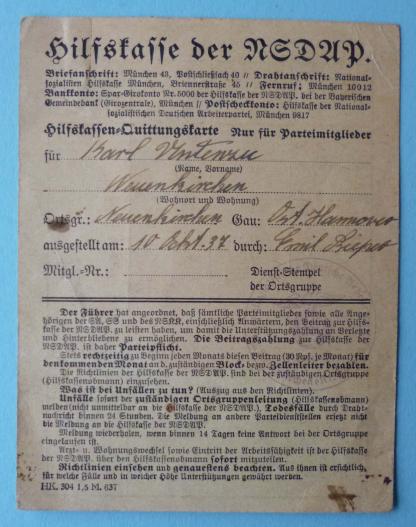 Hilfskasse der NSDAP.
Briefanschrift: München 43, Postschließfach 40 // Drahtanschrift: National-
sozialisten Hilfskasse München, Briennerstraße 45 // Fernruf: München 10012
Bankkonto: Spar-Girokonto Nr. 5000 der Hilfskasse der NSDAP. bei der Bayerischen
Gemeindebank (Girozentrale), München // Postscheckkonto: Hilfskasse der National-
sozialistischen Deutschen Arbeiterpartei, München 9817
Hilfskassen-Quittungskarte Nur für Parteimitglieder
für Karl
(Name, Vorname)
Neuenkirchen
(Wohnort und Wohnung)
Ortsgr.: Neuenkirchen Gau: Ost. Hannover
ausgestellt am: 10 Okt. 37 durch: Emil
Mitgl.-Nr.: Dienst-Stempel
der Ortsgruppe
Der Führer hat angeordnet, daß sämtliche Parteimitglieder sowie alle Ange-
hörigen der SA, SS und des NSKK, einschließlich Anwärtern, den Beitrag zur Hilfs-
kasse der NSDAP. zu leisten haben, um damit die Unterstützungszahlung an Verletzte
und Hinterbliebene zu ermöglichen. Die Beitragszahlung zur Hilfskasse der
NSDAP. ist daher Parteipflicht.
Stets rechtzeitig zu Beginn jeden Monats diesen Beitrag (30 Rpf. je Monat) für
den kommenden Monat an d. zuständigen Block- bezw. Zellenleiter bezahlen.
Die Richtlinien der Hilfskasse der NSDAP. sind bei der zuständigen Ortsgruppe
(Hilfskassenobmann) einzusehen.
Was ist bei Unfällen zu tun? (Auszug aus den Richtlinien).
Unfälle sofort der zuständigen Ortsgruppenleitung (Hilfskassenobmann)
melden (nicht unmittelbar an die Hilfskasse der NSDAP.), Todesfälle durch Draht-
nachricht binnen 24 Stunden. Die Meldung an andere Parteidienststellen ersetzt nicht
die Meldung an die Hilfskasse der NSDAP.
Meldung wiederholen, wenn binnen 14 Tagen keine Antwort bei der Ortsgruppe
eingelaufen ist.
Arzt- u. Wohnungswechsel sowie Eintritt der Arbeitsfähigkeit ist der Hilfskasse
der NSDAP. über den Hilfskassenobmann sofort mitzuteilen.
Richtlinien einsehen und genauestens beachten. Aus ihnen ist ersichtlich,
für welche Fälle und in welcher Höhe Unterstützungen gewährt werden.
HK. 304 1,5 M. 637